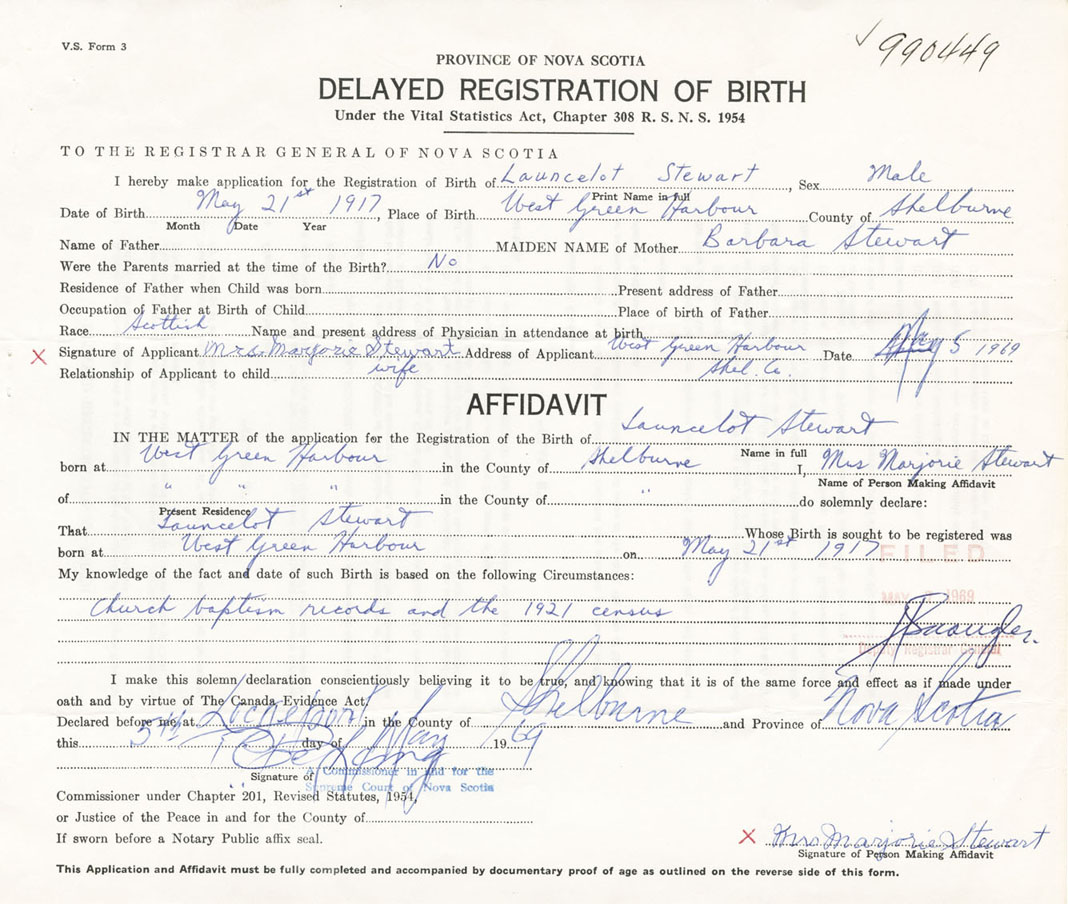 V.S. Form 3
990449
PROVINCE OF NOVA SCOTIA
DELAYED REGISTRATION OF BIRTH
Under the Vital Statistics Act, Chapter 308 R. S. N. S. 1954
TO THE REGISTRAR GENERAL OF NOVA SCOTIA
I hereby make application for the Registration of Birth of Launcelot Stewart, Sex Male
Print Name in full
Date of Birth May 21st 1917, Place of Birth West Green Harbour County of Shelburne
Month Date Year
Name of Father MAIDEN NAME of Mother Barbara Stewart
Were the Parents married at the time of the Birth? No
Residence of Father when Child was born Present address of Father
Occupation of Father at Birth of Child Place of birth of Father
Race Scottish Name and present address of Physician in attendance at birth
X Signature of Applicant Mrs. Marjorie Stewart Address of Applicant West Green Harbour Date May 5 1969
Relationship of Applicant to child wife Shel. Co.
AFFIDAVIT
IN THE MATTER of the application for the Registration of the Birth of Launcelot Stewart
Name in full
born at West Green Harbour in the County of Shelburne I, Mrs Marjorie Stewart
Name of Person Making Affidavit
of " " " in the County of " do solemnly declare:
Present Residence
That Launcelot Stewart Whose Birth is sought to be registered was
born at West Green Harbour on May 21st 1917
FILED
My knowledge of the fact and date of such Birth is based on the following Circumstances:
1969
Church baptism records and the 1921 census
I make this solemn declaration conscientiously believing it to be true, and knowing that it is of the same force and effect as if made under
oath and by virtue of The Canada Evidence Act
Declared before me at Lockeport in the County of Shelburne and Province of Nova Scotia
this 5th day of May 1969
Signature of
A Commissioner in and for the
Supreme Court of Nova Scotia
Commissioner under Chapter 201, Revised Statutes, 1954,
or Justice of the Peace in and for the County of
If sworn before a Notary Public affix seal.
X Mrs Marjorie Stewart
Signature of Person Making Affidavit
This Application and Affidavit must be fully completed and accompanied by documentary proof of age as outlined on the reverse side of this form.